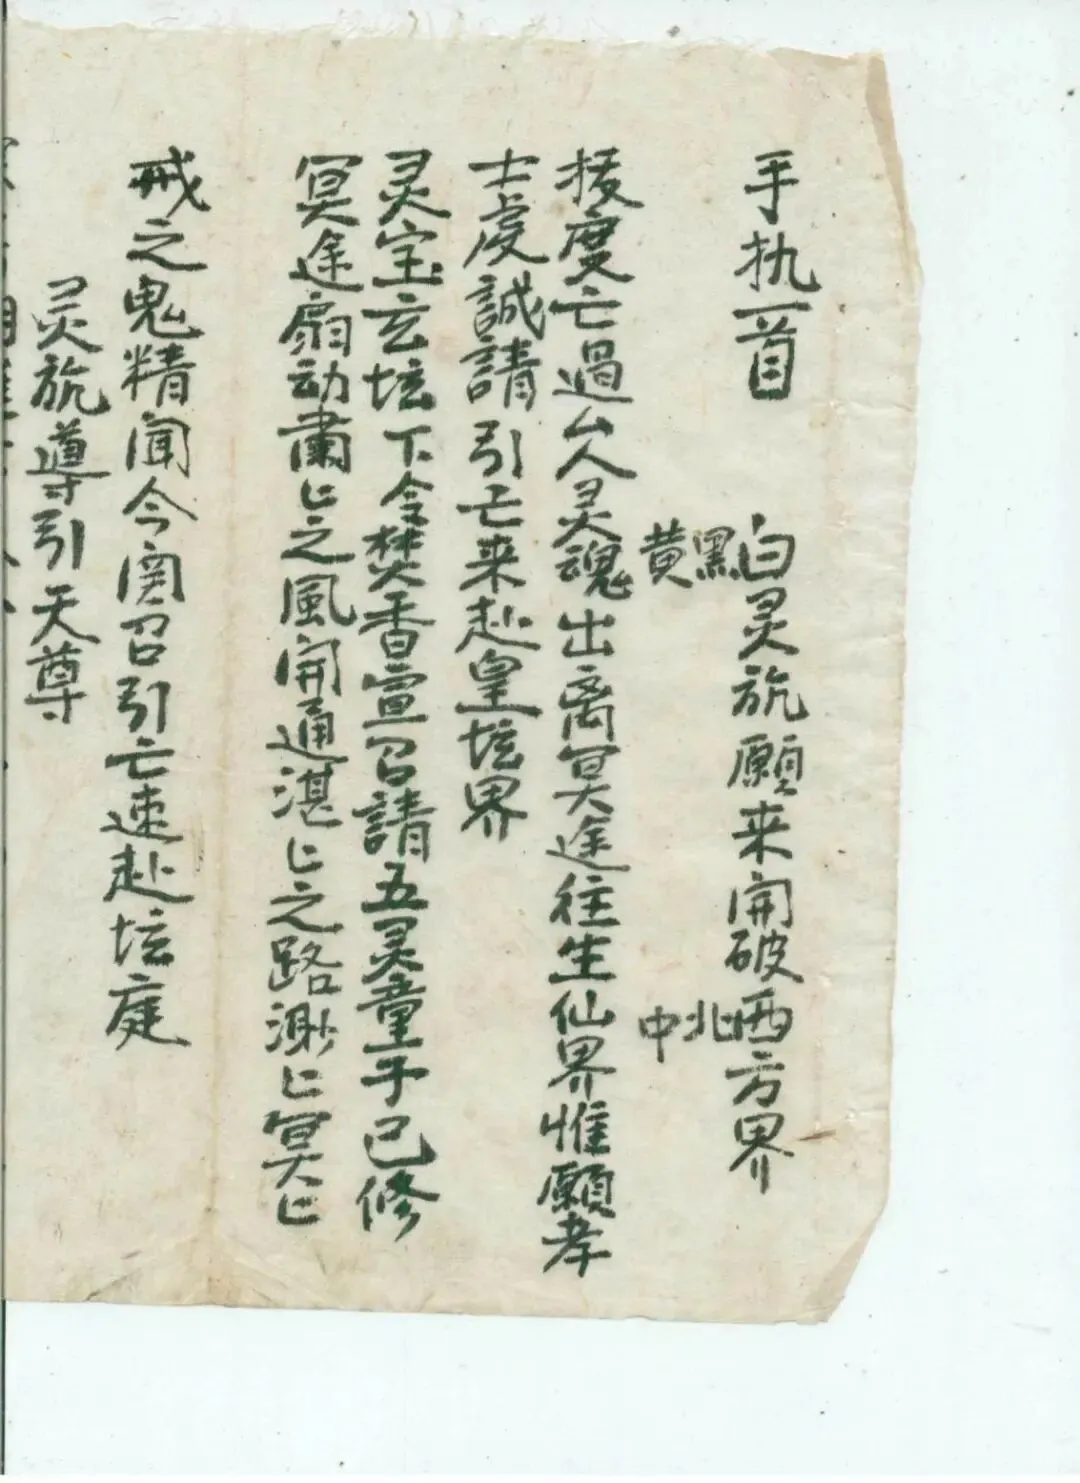 手执一首 白灵旂願来開破西方界
黑 北
黄 中
接度亡過厶人灵魂出离冥途往生仙界惟願孝
士虔誠請引亡来赴皇坛界
灵宝玄坛下令焚香宣召請五灵童子已修
冥途扇动肅匕之風開通湛匕之路渺匕冥匕
戒之鬼精闻今関召引亡速赴坛庭
灵旂導引天尊